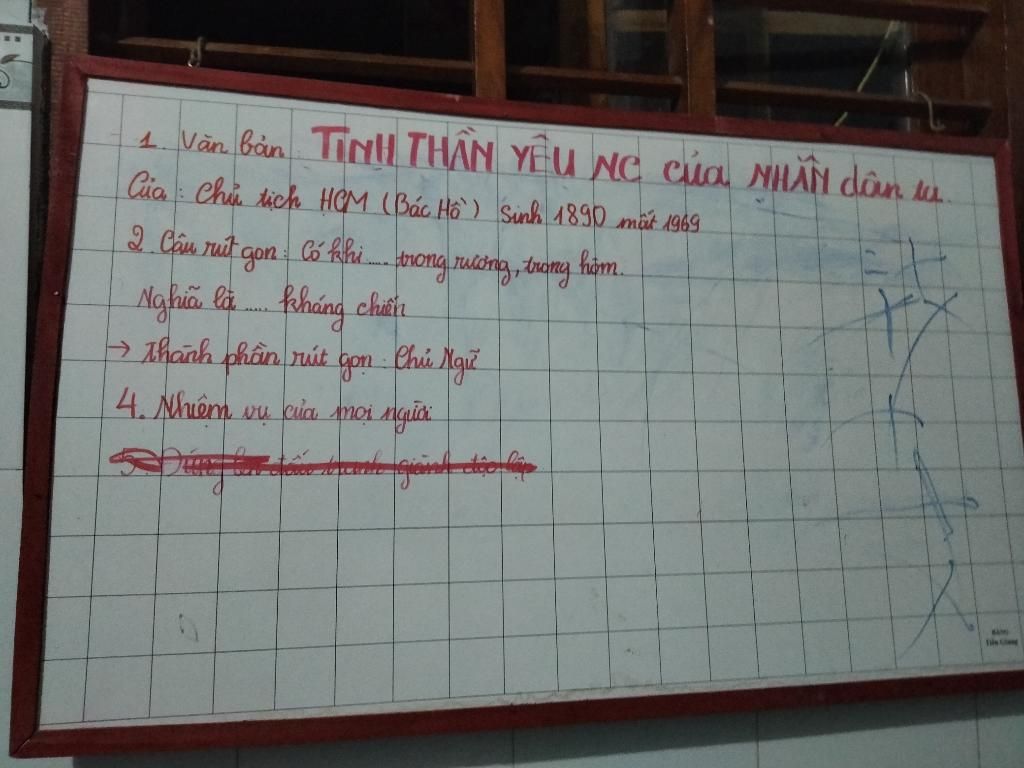 1. Văn bản: TINH THẦN YÊU NC của NHÂN dân ta.
Của: Chủ tịch HCM (Bác Hồ) sinh 1890 mất 1969
2. Câu rút gọn: Có khi .... trong rương, trong hòm.
Nghĩa là ..... kháng chiến
→ Thành phần rút gọn: Chủ Ngữ
4. Nhiệm vụ của mọi người
đấu tranh giành độc lập
BẢNG
Tiền Giang